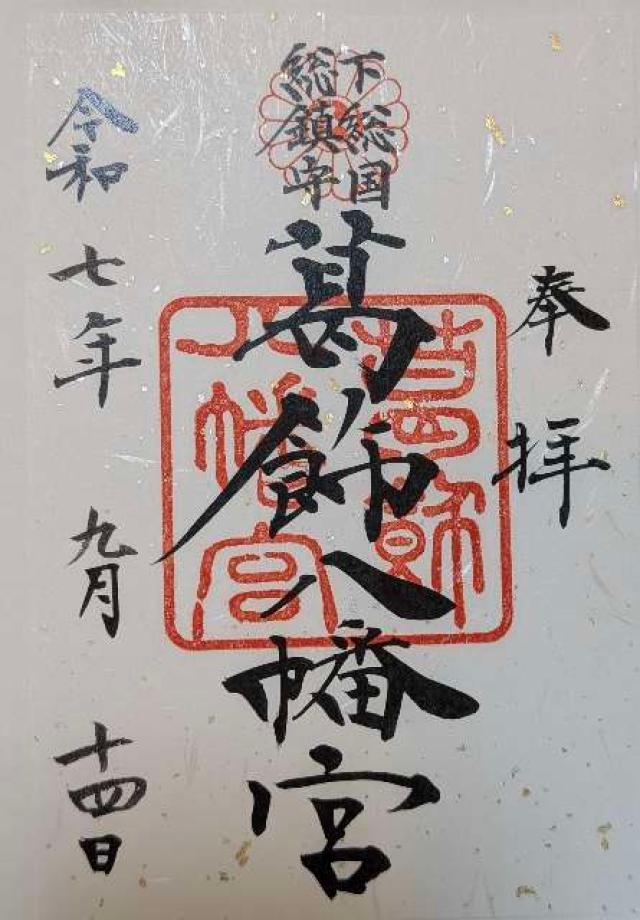 奉拝
下総国
総鎮守
葛飾八幡宮
葛飾
八幡宮
令和七年九月十四日